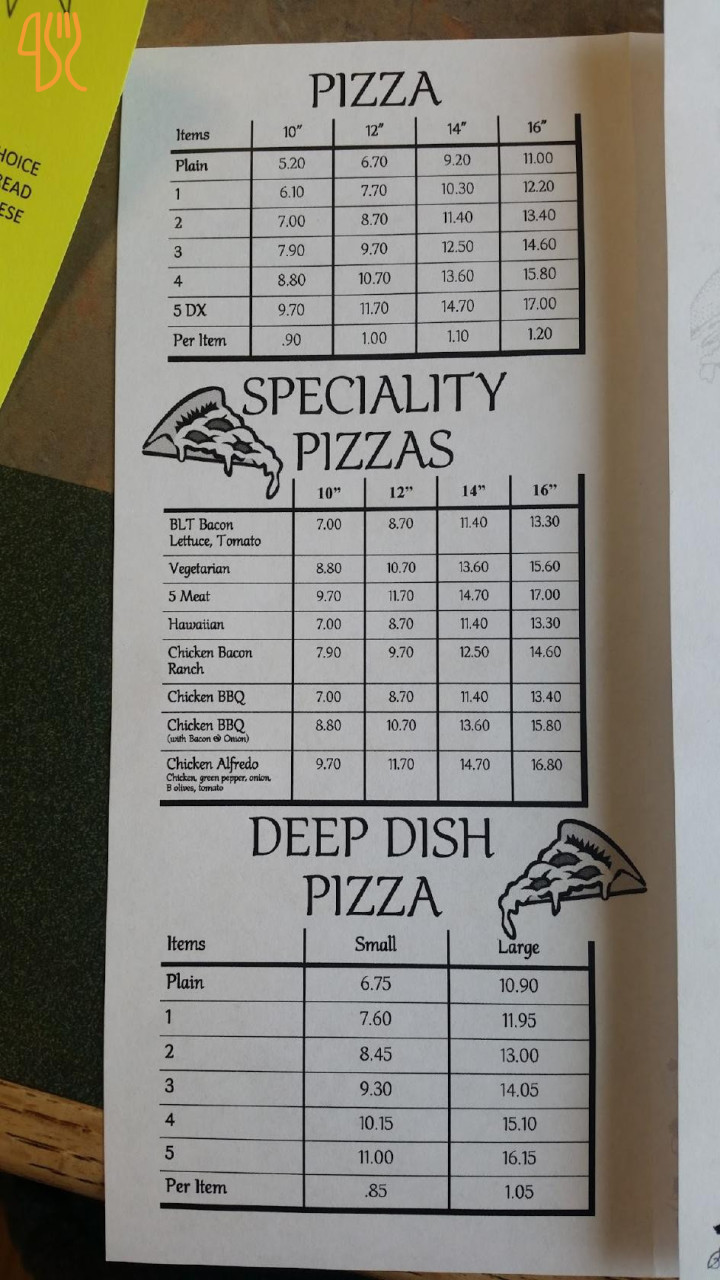 HOICE
READ
ESE
PIZZA
Items 10" 12" 14" 16"
Plain 5.20 6.70 9.20 11.00
1 6.10 7.70 10.30 12.20
2 7.00 8.70 11.40 13.40
3 7.90 9.70 12.50 14.60
4 8.80 10.70 13.60 15.80
5 DX 9.70 11.70 14.70 17.00
Per Item .90 1.00 1.10 1.20
SPECIALITY
PIZZAS
10” 12” 14” 16”
BLT Bacon 7.00 8.70 11.40 13.30
Lettuce, Tomato
Vegetarian 8.80 10.70 13.60 15.60
5 Meat 9.70 11.70 14.70 17.00
Hawaiian 7.00 8.70 11.40 13.30
Chicken Bacon 7.90 9.70 12.50 14.60
Ranch
Chicken BBQ 7.00 8.70 11.40 13.40
Chicken BBQ 8.80 10.70 13.60 15.80
(with Bacon & Onion)
Chicken Alfredo 9.70 11.70 14.70 16.80
Chicken, green pepper, onion,
B olives, tomato
DEEP DISH
PIZZA
Items Small Large
Plain 6.75 10.90
1 7.60 11.95
2 8.45 13.00
3 9.30 14.05
4 10.15 15.10
5 11.00 16.15
Per Item .85 1.05